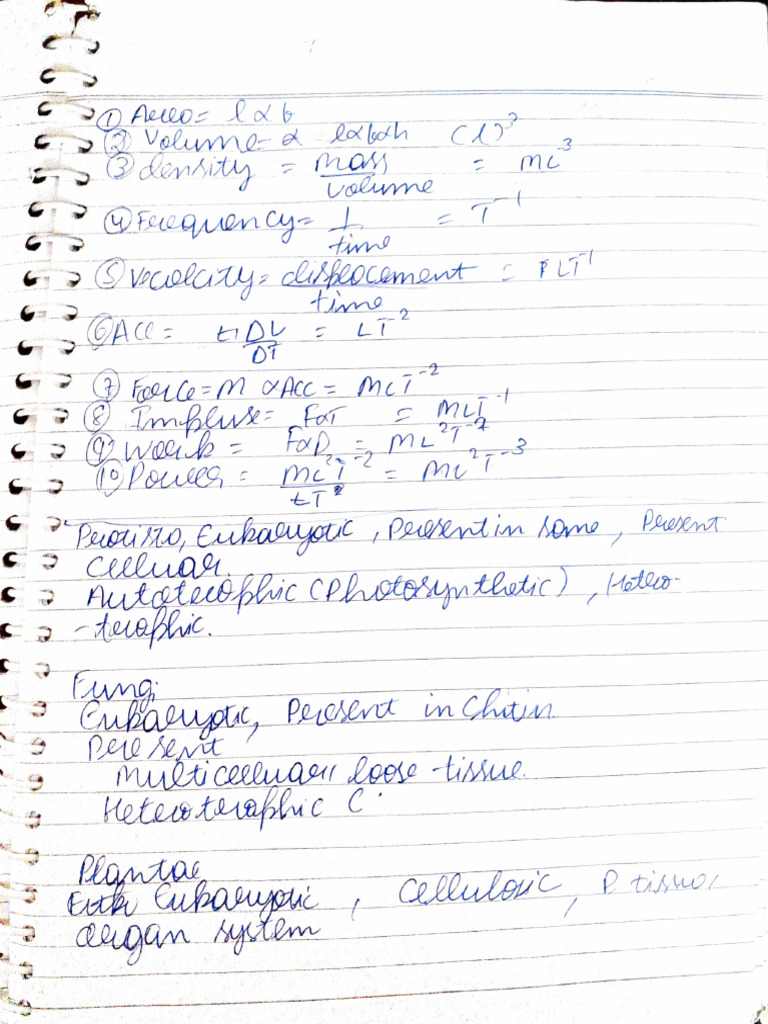 ① Area = l x b
② Volume = x l x b x h (L)³
③ density = mass/volume = ML³
④ Frequency = 1/time = T⁻¹
⑤ Vecolcity = displacement/time = LT⁻¹
⑥ Acc = DV/DT = LT⁻²
⑦ Force = M x Acc = MLT⁻²
⑧ Impluse = FxT = MLT⁻¹
⑨ Work = FxD = ML²T⁻²
⑩ Power = ML²T⁻²/T = ML²T⁻³
Protista, Eukaryotic, Present in some, Present
Celluar.
Autotrophic (Photosynthetic), Hetero-
-trophic.
Fungi
Eukaryotic, Present in Chitin
Present
Multicelluar loose tissue.
Heterotrophic (
Plantae
Eukaryotic, Cellulosic, P. tissue,
organ system